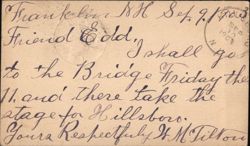 Franklin NH Sep. 9, 1
Friend Edd,
I shall go
to the Bridge Friday the
11, and there take the
stage for Hillsboro.
Yours Respectfully W. M Tilton